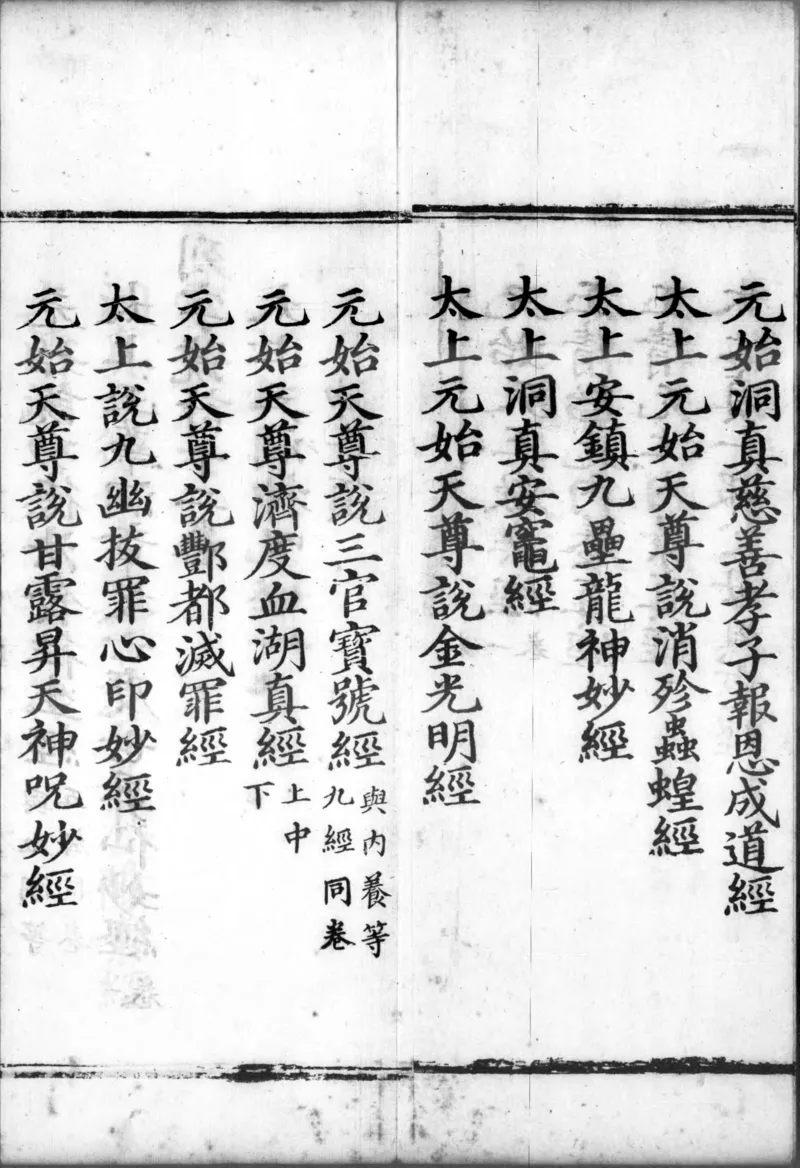 元始洞真慈善孝子報恩成道經
太上元始天尊說消殄蟲蝗經
太上安鎮九壘龍神妙經
太上洞真安竈經
太上元始天尊說金光明經
元始天尊說三官寶號經 與內養等九經同卷
元始天尊濟度血湖真經 上中下
元始天尊說酆都滅罪經
太上說九幽拔罪心印妙經
元始天尊說甘露昇天神呪妙經